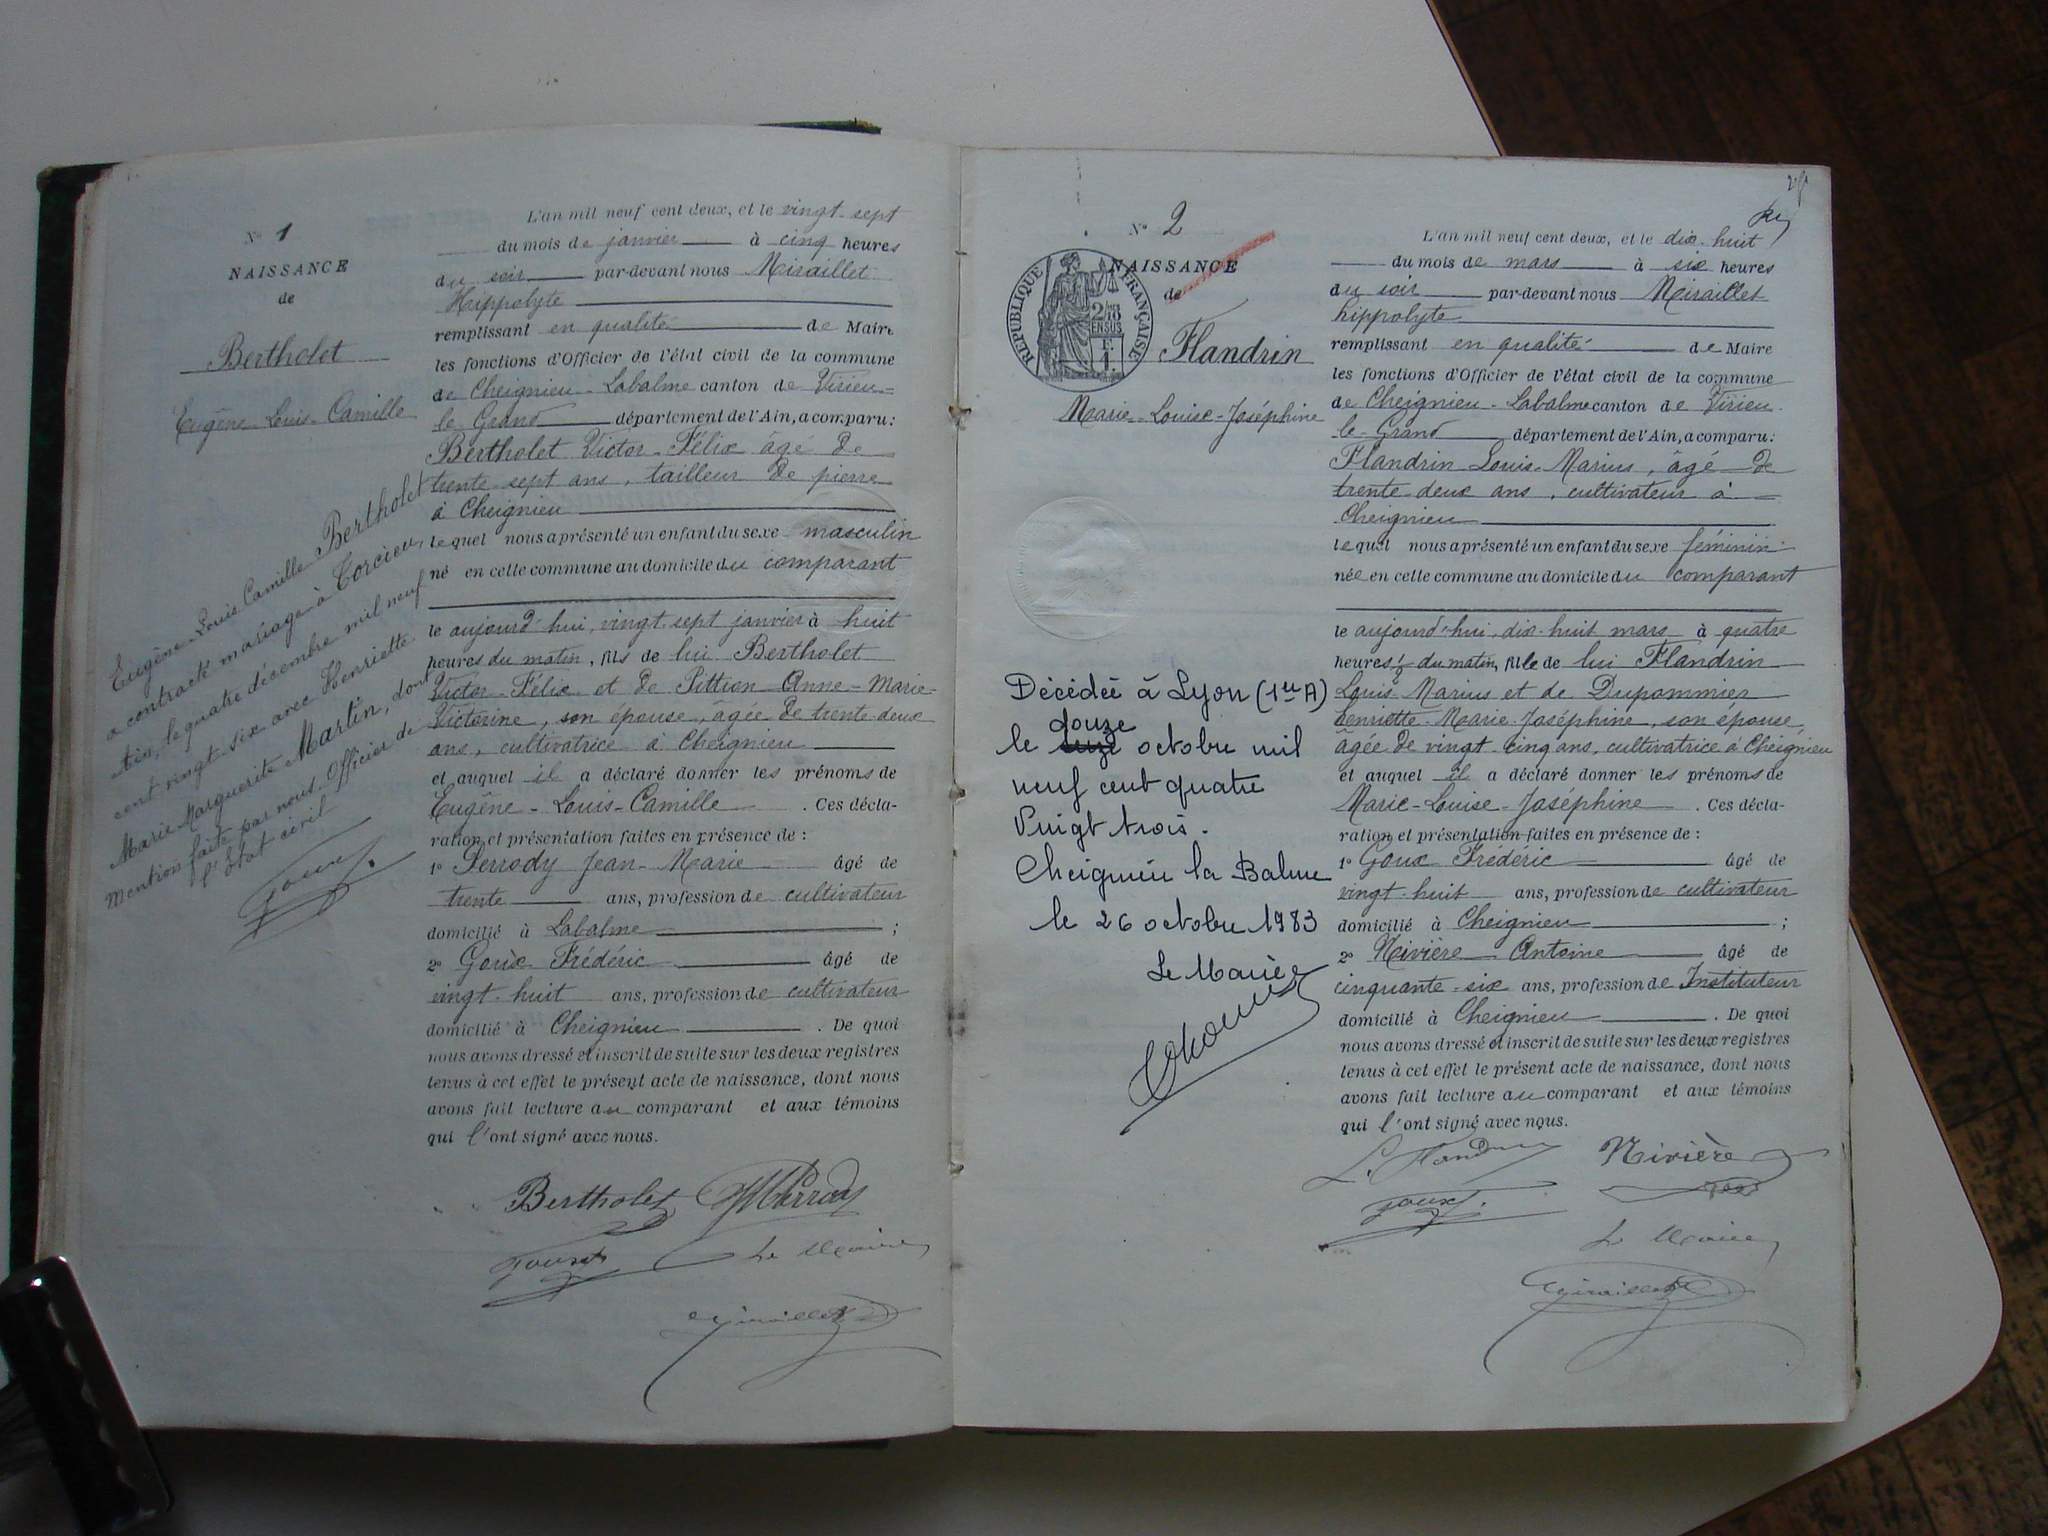 N° 1
NAISSANCE
de
Bertholet
Eugène-Louis-Camille
Eugène-Louis Camille Bertholet
a contracté mariage à Torcieu,
Ain, le quatre décembre mil neuf
cent vingt six avec Henriette
Marie Marguerite Martin, dont
Mention faite par nous Officier de
l'Etat civil
L'an mil neuf cent deux, et le vingt-sept
du mois de janvier à cinq heures
du soir par-devant nous Miraillet
Hippolyte
remplissant en qualité de Maire
les fonctions d'Officier de l'état civil de la commune
de Cheignieu-Labalme canton de Virieu-
le-Grand département de l'Ain, a comparu:
Bertholet Victor-Félix âgé de
trente-sept ans, tailleur de pierre
à Cheignieu
lequel nous a présenté un enfant du sexe masculin
né en cette commune au domicile du comparant
le aujourd'hui, vingt-sept janvier à huit
heures du matin, fils de lui Bertholet
Victor-Félix et de Pittion Anne-Marie-
Victorine, son épouse, âgée de trente-deux
ans, cultivatrice à Cheignieu
et auquel il a déclaré donner les prénoms de
Eugène-Louis-Camille. Ces décla-
ration et présentation faites en présence de :
1° Perrody Jean-Marie âgé de
trente ans, profession de cultivateur
domicilié à Labalme ;
2° Goux Frédéric âgé de
vingt-huit ans, profession de cultivateur
domicilié à Cheignieu. De quoi
nous avons dressé et inscrit de suite sur les deux registres
tenus à cet effet le présent acte de naissance, dont nous
avons fait lecture au comparant et aux témoins
qui l'ont signé avec nous.
Bertholet JM Perrody
Goux Le Maire
Miraillet
N° 2
NAISSANCE
de
RÉPUBLIQUE FRANÇAISE
2/10 EN SUS
F. 1.
Flandrin
Marie-Louise-Joséphine
Décédée à Lyon (1er A)
douze
le octobre mil
neuf cent quatre
Vingt trois.
Cheignieu la Balme
le 26 octobre 1983
Le Maire
L'an mil neuf cent deux, et le dix-huit
du mois de mars à six heures
du soir par-devant nous Miraillet
hippolyte
remplissant en qualité de Maire
les fonctions d'Officier de l'état civil de la commune
de Cheignieu-Labalme canton de Virieu-
le-Grand département de l'Ain, a comparu:
Flandrin Louis-Marius, âgé de
trente-deux ans, cultivateur à
Cheignieu
lequel nous a présenté un enfant du sexe féminin
née en cette commune au domicile du comparant
le aujourd'hui, dix-huit mars à quatre
heures ½ du matin, fille de lui Flandrin
Louis-Marius et de Dupommier
henriette-Marie-Joséphine, son épouse,
âgée de vingt-cinq ans, cultivatrice à Cheignieu
et auquel il a déclaré donner les prénoms de
Marie-Louise-Joséphine. Ces décla-
ration et présentation faites en présence de :
1° Goux Frédéric âgé de
vingt-huit ans, profession de cultivateur
domicilié à Cheignieu ;
2° Nivière Antoine âgé de
cinquante-six ans, profession de Instituteur
domicilié à Cheignieu. De quoi
nous avons dressé et inscrit de suite sur les deux registres
tenus à cet effet le présent acte de naissance, dont nous
avons fait lecture au comparant et aux témoins
qui l'ont signé avec nous.
L. Flandrin Nivière
Goux
Le Maire
Miraillet